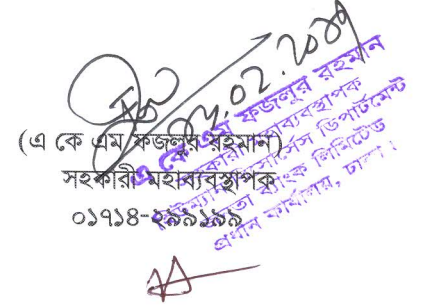 ০২.২০
(এ কে এম ফজলুর রহমান)
সহকারী মহাব্যবস্থাপক
০১৭১৪-২৯৯১৯৯
এ কে এম ফজলুর রহমান
সহকারী মহাব্যবস্থাপক
ডিপার্টমেন্ট
ব্যাংক লিমিটেড
প্রধান কার্যালয়, ঢাকা।